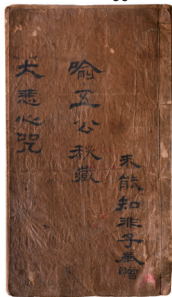 未能知非子奉贈
喻五公秘藏
大悲心咒